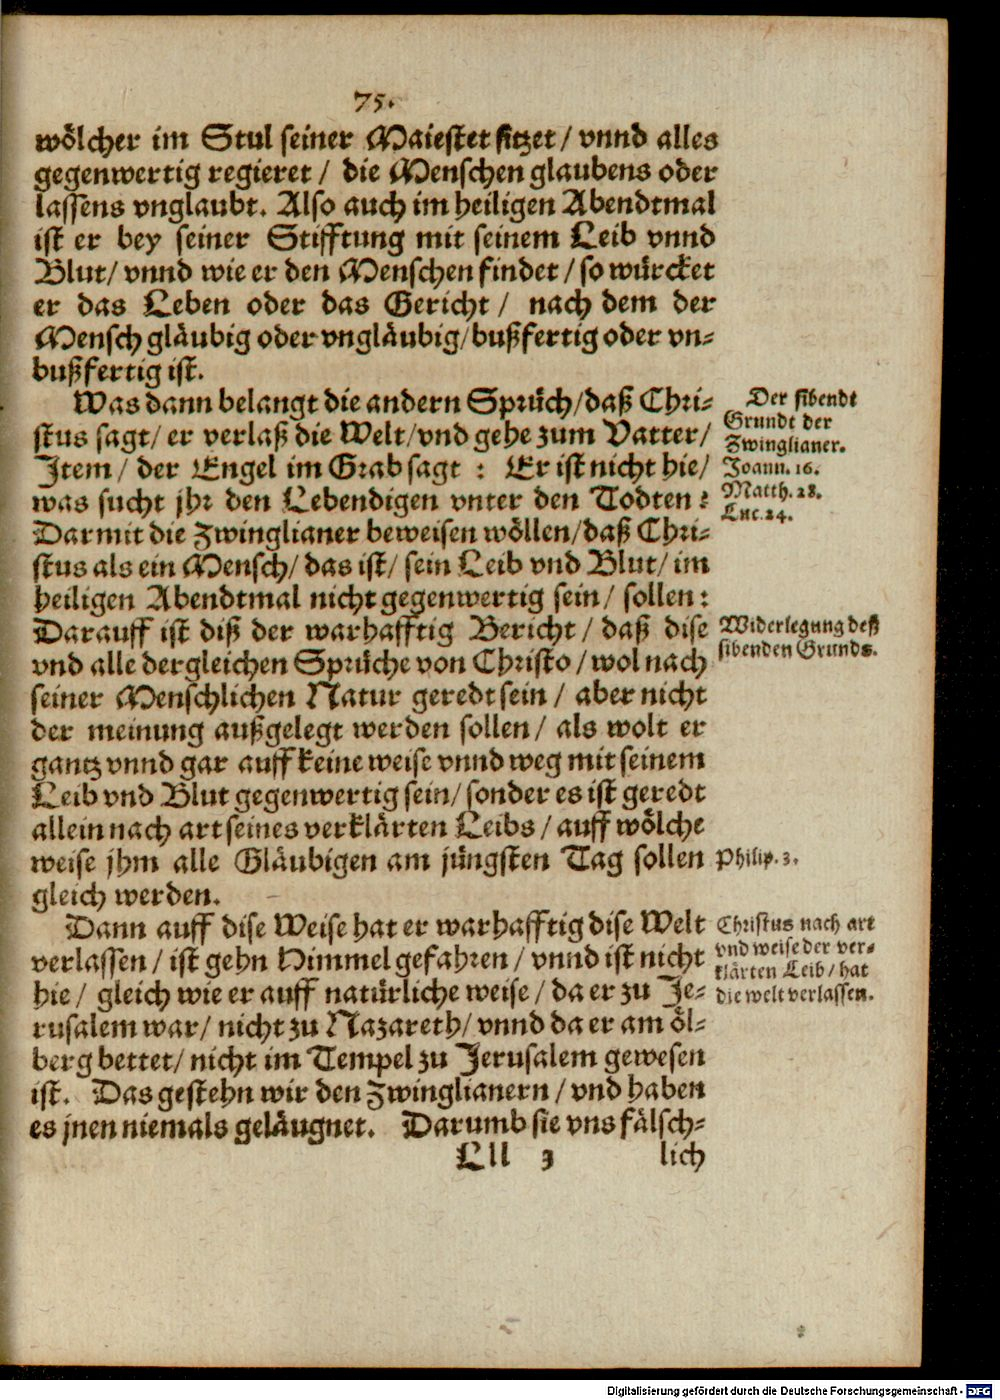 75.
wölcher im Stul seiner Maiestet sitzet / vnnd alles
gegenwertig regieret / die Menschen glaubens oder
lassens vnglaubt. Also auch im heiligen Abendtmal
ist er bey seiner Stifftung mit seinem Leib vnnd
Blut/ vnnd wie er den Menschen findet / so würcket
er das Leben oder das Gericht / nach dem der
Mensch gläubig oder vngläubig/ bußfertig oder vn-
bußfertig ist.
Was dann belangt die andern Sprüch/ daß Chri-
stus sagt/ er verlaß die Welt/ vnd gehe zum Vatter/
Item / der Engel im Grab sagt : Er ist nicht hie/
was sucht jhr den Lebendigen vnter den Todten:
Darmit die Zwinglianer beweisen wöllen/ daß Chri-
stus als ein Mensch/ das ist/ sein Leib vnd Blut/ im
heiligen Abendtmal nicht gegenwertig sein/ sollen:
Darauff ist diß der warhafftig Bericht / daß dise
vnd alle dergleichen Sprüche von Christo / wol nach
seiner Menschlichen Natur geredt sein / aber nicht
der meinung außgelegt werden sollen / als wolt er
gantz vnnd gar auff keine weise vnnd weg mit seinem
Leib vnd Blut gegenwertig sein/ sonder es ist geredt
allein nach art seines verklärten Leibs / auff wölche
weise jhm alle Gläubigen am jüngsten Tag sollen
gleich werden.
Dann auff dise Weise hat er warhafftig dise Welt
verlassen / ist gehn Himmel gefahren / vnnd ist nicht
hie / gleich wie er auff natürliche weise / da er zu Je-
rusalem war/ nicht zu Nazareth/ vnnd da er am öl-
berg bettet/ nicht im Tempel zu Jerusalem gewesen
ist. Das gestehn wir den Zwinglianern / vnd haben
es jnen niemals geläugnet. Darumb sie vns fälsch-
Lll 3 lich
Der sibendt
Grundt der
Zwinglianer.
Joann. 16.
Matth. 28.
Luc. 24.
Widerlegung deß
sibenden Grunds.
Philip. 3.
Christus nach art
vnd weise der ver-
klärten Leib / hat
die welt verlassen.
Digitalisierung gefördert durch die Deutsche Forschungsgemeinschaft - DFG